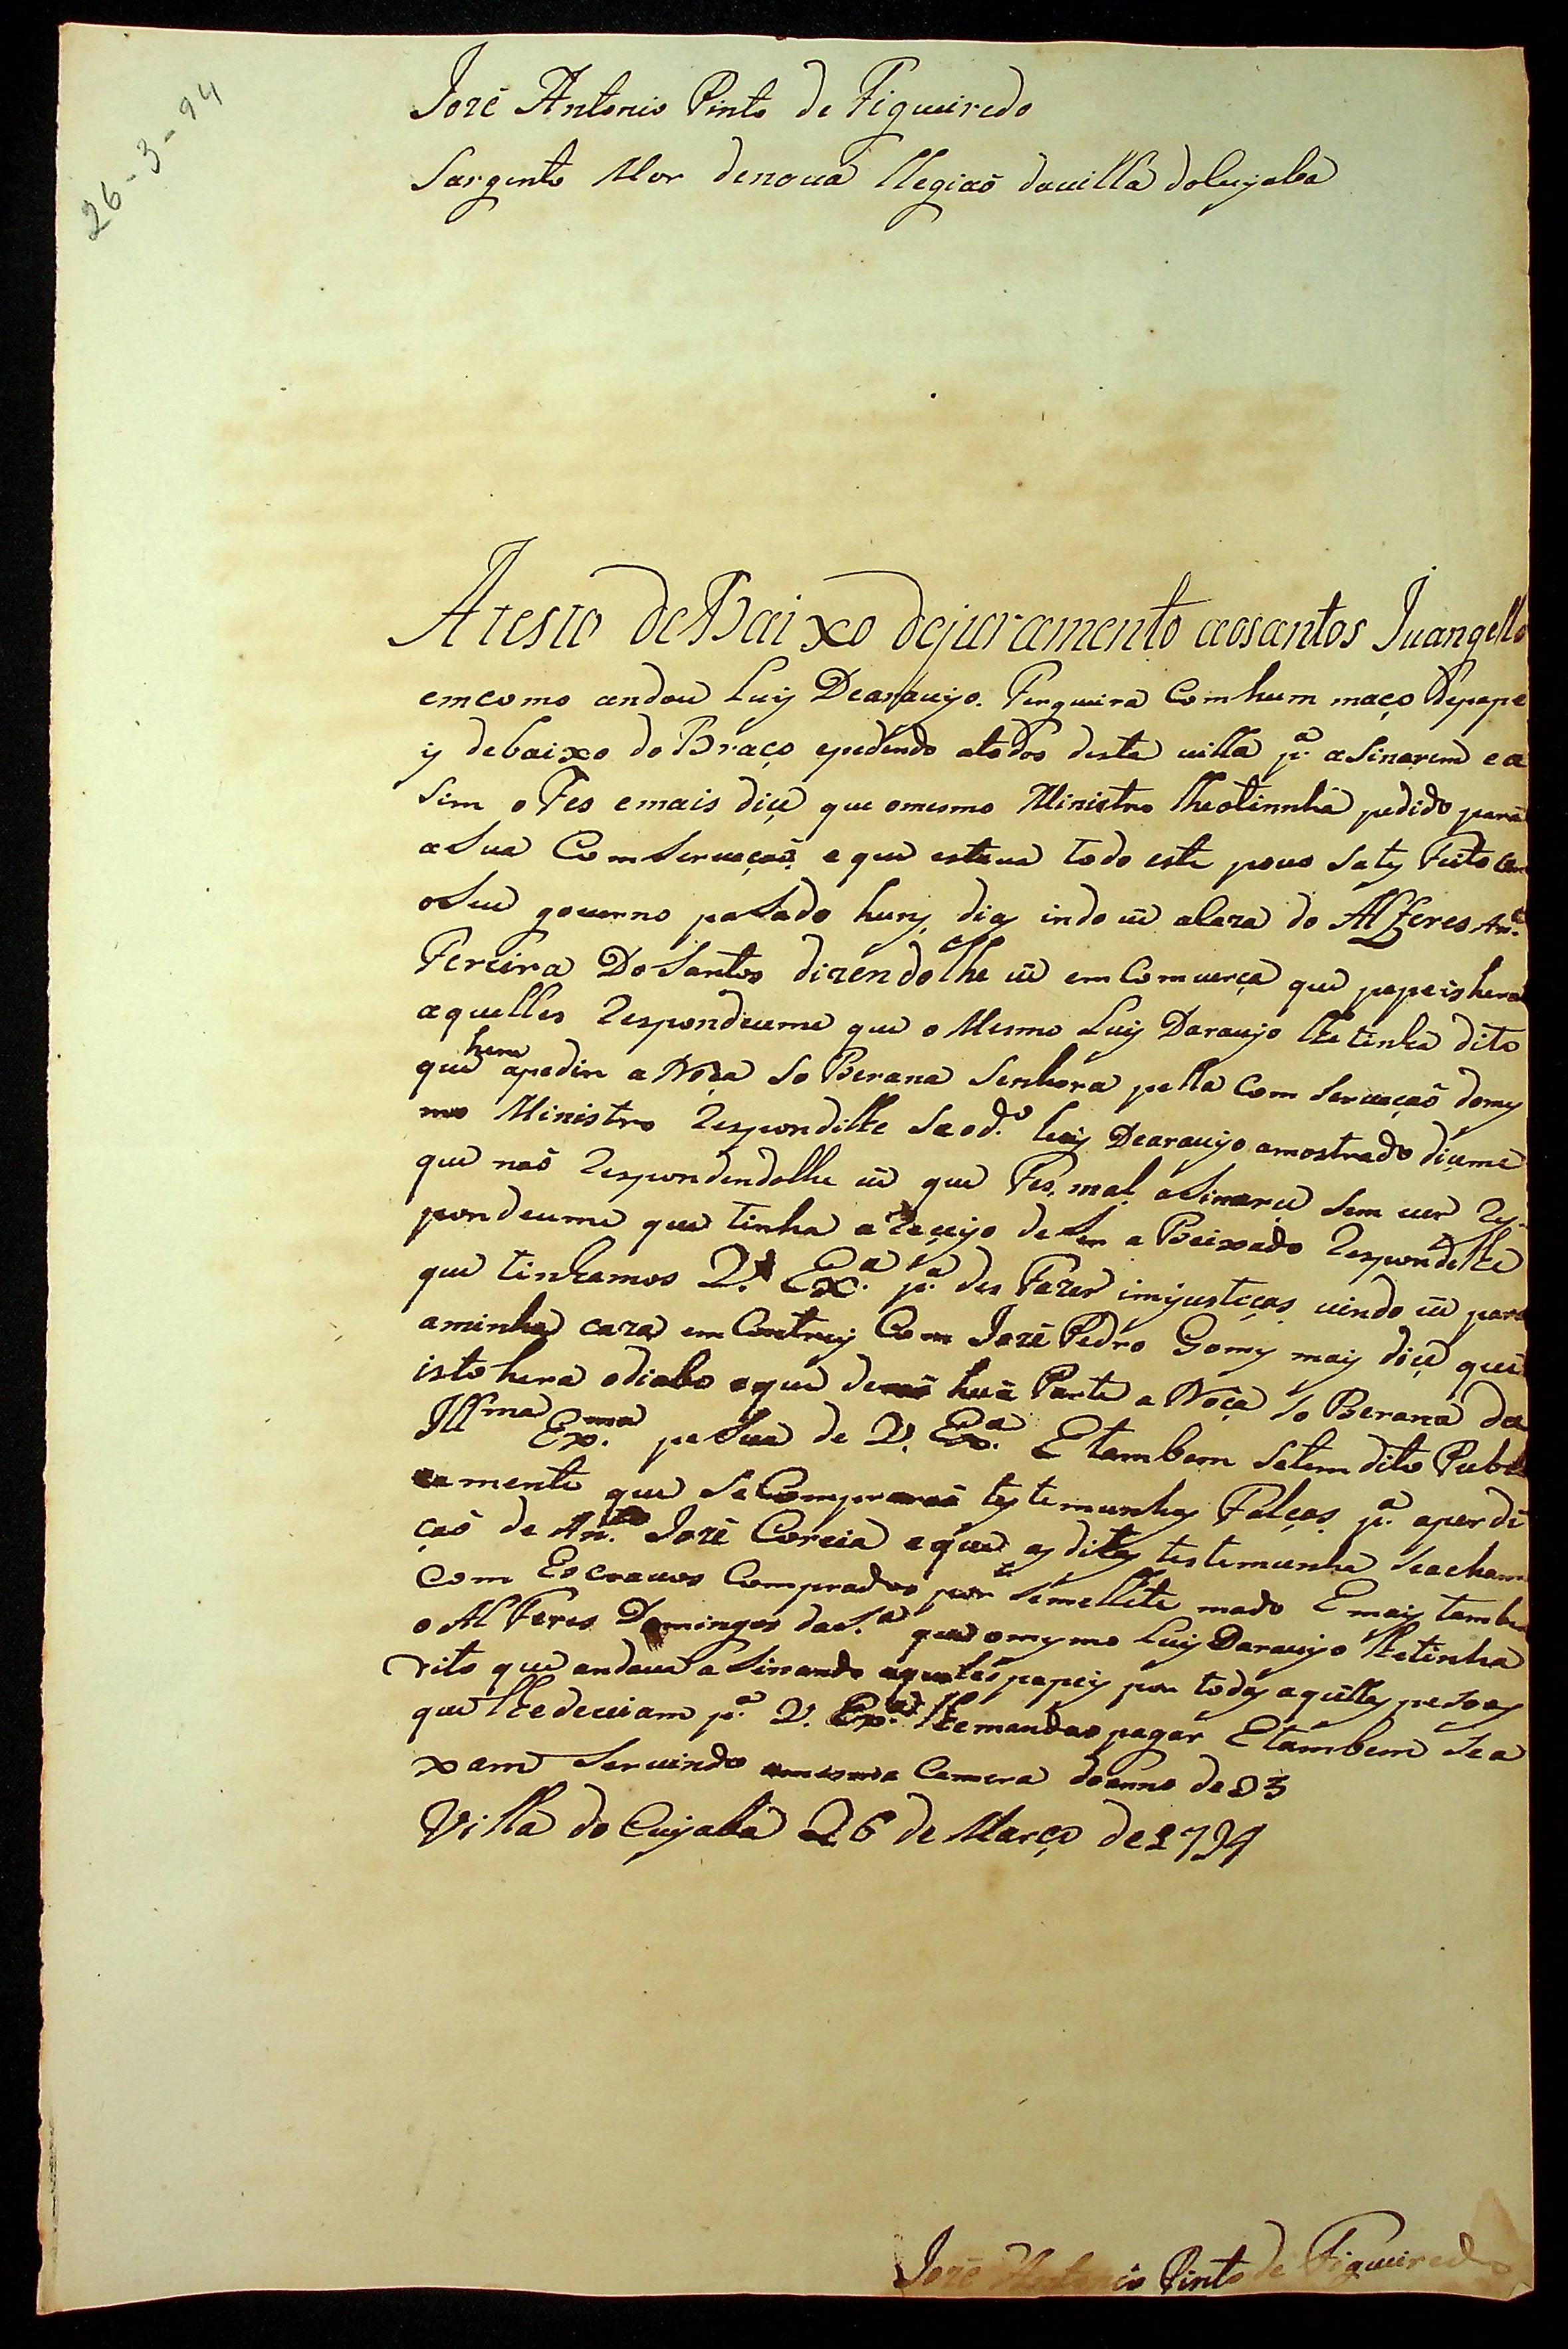 26-3-94
Jozé Antonio Pinto de Figueiredo
Sargento Mor denoua llegiaõ dauilla doCuyaba
Atesto deBaixo dejuramento aosantos Iuangello
emcomo andou Luis Dearaujo. Fergueira Comhum maço Depape
is debaixo do Braço epedindo atodos desta uilla p.ª aSinarem ea
Sim o Fes emais diçe que omesmo Ministro lheotinnha pedido para
aSua ComSeruaçaõ e que estaua todo este pouo Satis Feito com
oSeu gouerno paSado huns dias indo eu aCaza do Alferes An.to
Fereira DoSantos dizendolhe eu emComuerça que papeis hera
aquelles Respondeume que o Mesmo Luis Daraujo lhetinha dito
que hera apedir a Noça SoBerana Senhora pella ComSeruaçaõ domes
mo Ministro Respondilhe Seod.º Luis Dearaujo amostrado diçeme
que naõ Respondendolhe eu que Fes mal aSinarçe Sem uer Res-
pondeume que tinha aReceyo deSer aBeixado Respondilhe
que tinhamos V. Ex.ª p.ª des Fazer imjustiças uindo eu para
aminha caza emContrey Com Jozé Pedro Gomes mais diçe que
isto hera odiabo eque huã Parte a Noça SoBerana da
Ill.ma Ex.ma peSua de V. Ex.ª E tambem Setem dito Publi
camente que SeCompraraõ testemunhas Falças p.ª aperdi
çaõ de An.to Jozé Coreia eque as ditas testemunha Seacham
com Escrauos Comprados por Semelhte modo E mais tambem
o AlFeres Domingos daS.ª que omesmo Luis Daraujo lhetinha
dito que andaua aSinando aqueles papeis por todas aquellas pesoas
que lhedeuiam p.ª V. Ex.ª lhemandar pagar E tambem Sea
xam Seruindo amesma Camera doanno de 93
Villa do Cuyaba 26 de Março de 1794
Jozé Antonio Pinto de Figueiredo